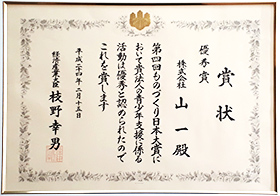 賞状
優秀賞
株式会社
山一殿
第四回ものづくり日本大賞に
おいて貴法人の青少年支援に係る
活動は優秀と認められたので
これを賞します
平成二十四年二月十五日
経済産業大臣 枝野幸男